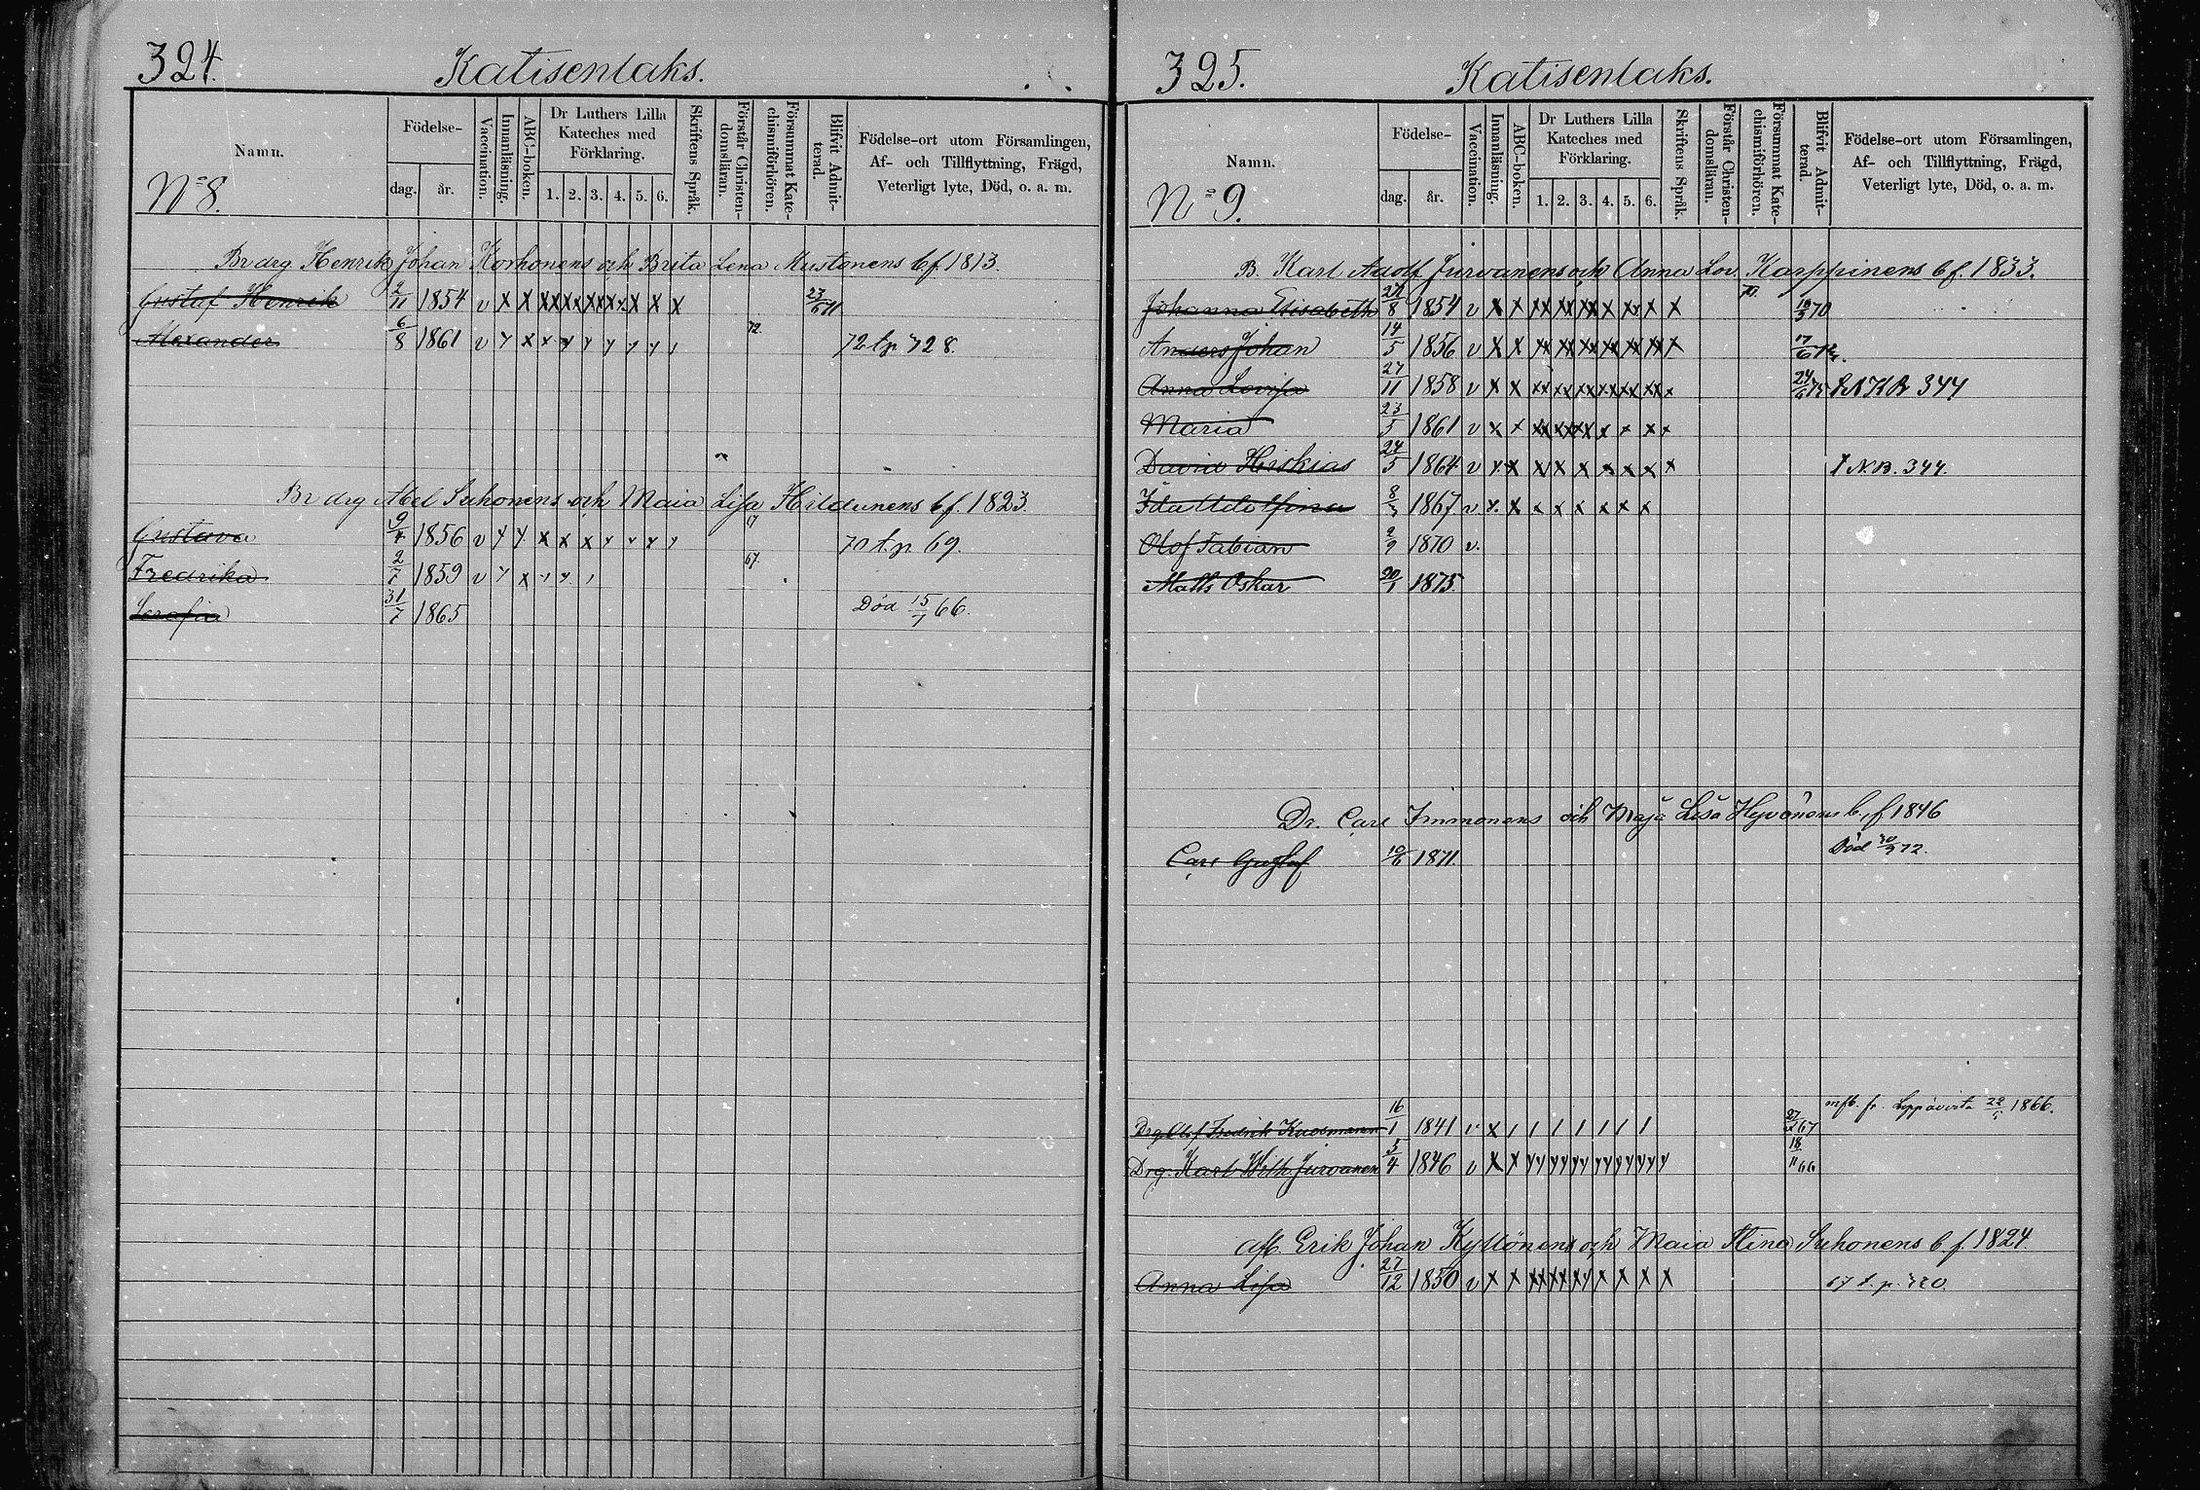 324.
Katisenlaks.
Namn.
Födelse-
dag.
år.
Vaccination.
Innanläsning.
ABC-boken.
Dr Luthers Lilla
Kateches med
Förklaring.
1. 2. 3. 4. 5. 6.
Skriftens Språk.
Förstår Christen-
domsläran.
Försummat Kate-
chismiförhören.
Blifvit Admit-
terad.
Födelse-ort utom Församlingen,
Af- och Tillflyttning, Frägd,
Veterligt lyte, Död, o. a. m.
No 8.
Br drg Henrik Johan Korhonens och Brita Lena Mustonens b f. 1813.
Gustaf Henrik 2/11 1854 v x x xx xx xx xx x x x 71
Alexander 6/8 1861 v y x x y y y y y 72 72 t.p. 728.
Br drg Abel Suhonens och Maia Lisa Hildunens b f. 1823
Gustava 9/4 1856 v y y x x x y y x y 67 70 t.p. 69.
Fredrika 2/7 1859 v y x 67.
Serafia 31/7 1865 Död 15/7 66.
325.
Katisenlaks.
Namn.
Födelse-
dag.
år.
Vaccination.
Innanläsning.
ABC-boken.
Dr Luthers Lilla
Kateches med
Förklaring.
1. 2. 3. 4. 5. 6.
Skriftens Språk.
Förstår Christen-
domsläran.
Försummat Kate-
chismiförhören.
Blifvit Admit-
terad.
Födelse-ort utom Församlingen,
Af- och Tillflyttning, Frägd,
Veterligt lyte, Död, o. a. m.
No 9.
B. Karl Adolf Jurvanens och Anna Lov. Karppinens b f. 1833.
Johanna Elisabeth 8 1854 v x x xx xx xx x xx x x 70
Anders Johan 14/5 1856 v x x xx xx xx xx xx xx x
Anna Lovisa 27/11 1858 v x x xx xx xx xx xx xx x 24/6 75 344
Maria 23/5 1861 v x x xx xx x x x x x
David Hiskias 24/5 1864 v x x x x x x x x x N.B. 344.
Ida Adolfina 8/3 1867 v x x x x x x x x
Olof Fabian 2/9 1870 v.
Matts Oskar 20/1 1875.
Dr. Carl Immonens och Maja Lisa Hyvönens b. f 1846
Carl Gustaf 10/6 1871. Död 72.
mfb. fr. Leppävirta 22/1 1866.
Drg Olof Fredrik Kuosmanen 16/1 1841 v x 1 1 1 1 1 1 1 67
Drg. Karl Wilh. Jurvanen 5/4 1846 v x x yy yy yy yy yy yy y 18/11 66
Afl. Erik Johan Kyllönens och Maia Stina Suhonens b f. 1824.
Anna Lisa 27/12 1850 v x x xx xx xy x x x x 67 t. p. 720.